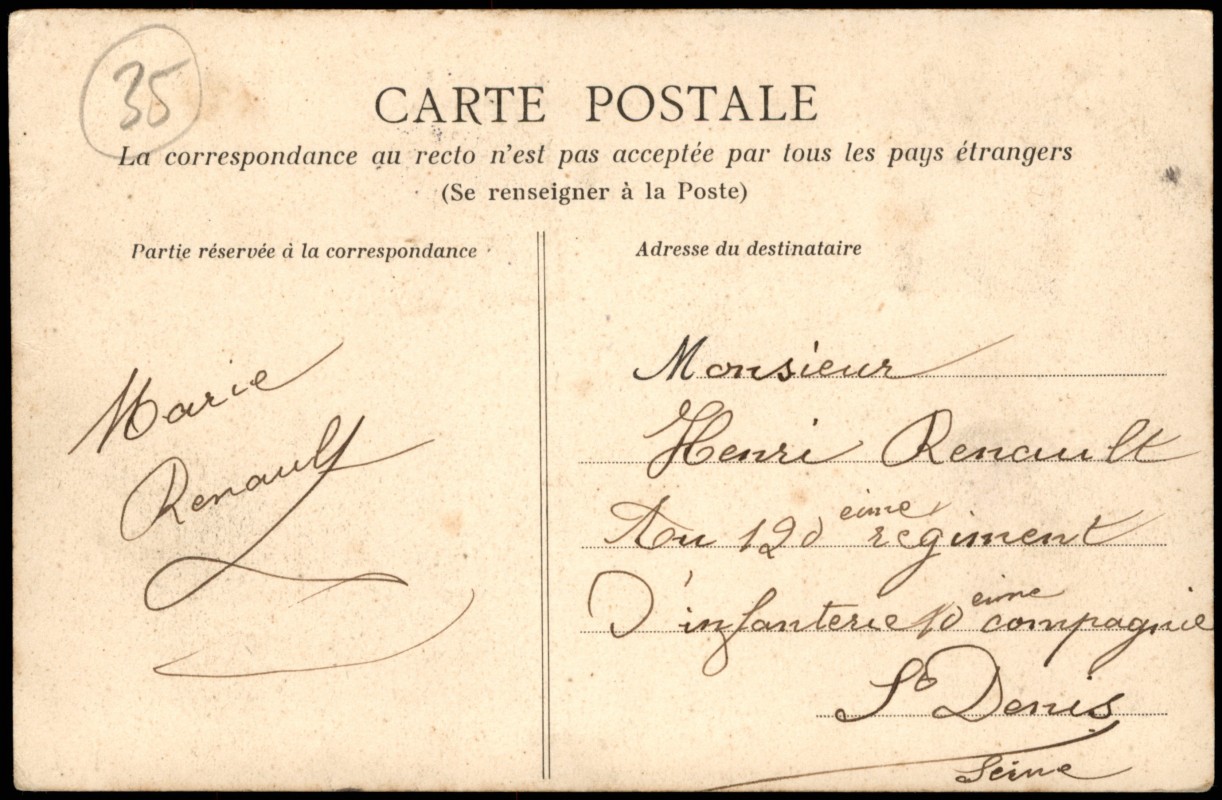 35
CARTE POSTALE
La correspondance au recto n'est pas acceptée par tous les pays étrangers
(Se renseigner à la Poste)
Partie réservée à la correspondance
Marie
Renault
Adresse du destinataire
Monsieur
Henri Renault
Au 120 eime regiment
D'infanterie 10 eime compagnie
St Denis
Seine